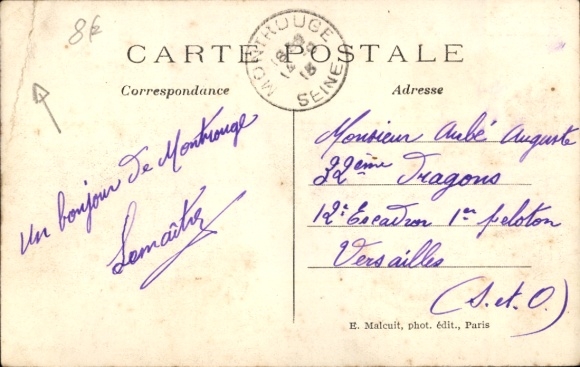 8€
CARTE POSTALE
MONTROUGE
SEINE
Correspondance
Adresse
Un bonjour de Montrouge
Lemaître
Monsieur Aubé Auguste
22ème Dragons
12e Escadron 1er peloton
Versailles
(S. et O.)
E. Malcuit, phot. édit., Paris